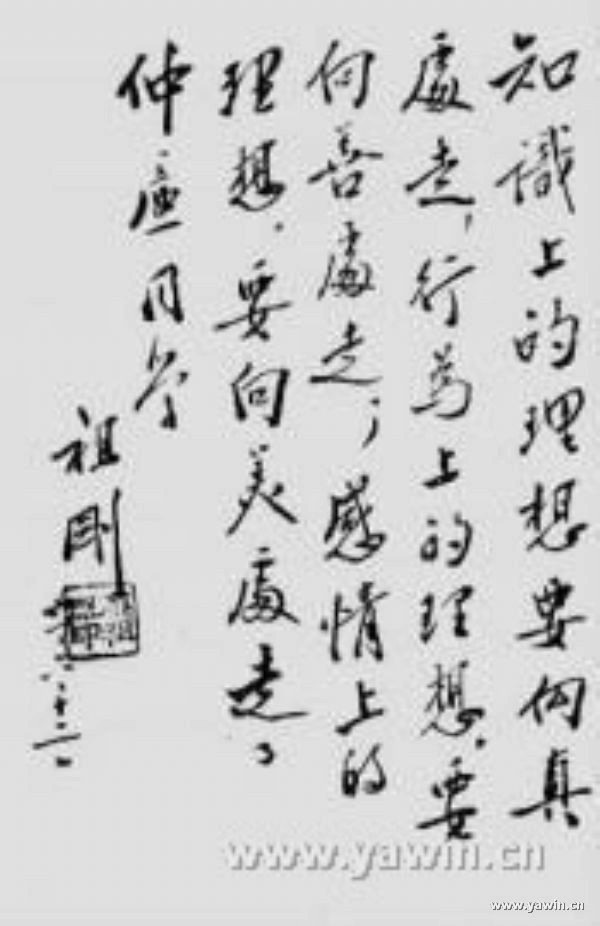 知識上的理想要向真
處走，行為上的理想，要
向善處走；感情上的
理想，要向美處走。
仲廉同學
祖剛
www.yawin.cn
www.yawin.cn